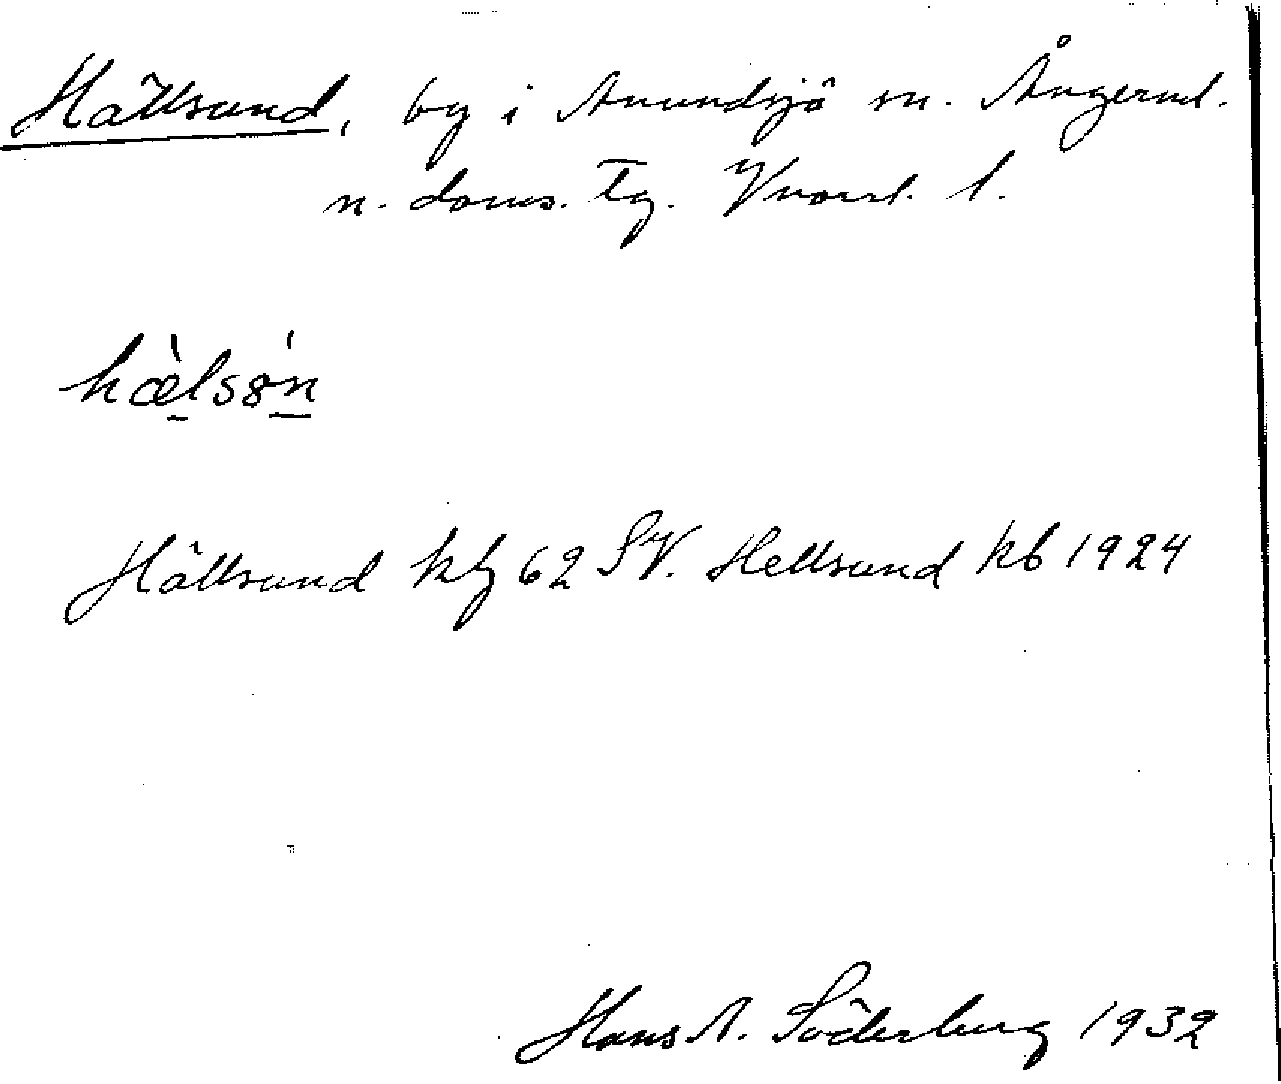 Hällsund, by i Anundsjö sn. Ångerml.
n. doms. tg. Vnorrl. l.
hæ̀lsøń
Hällsund kbg 62 SV. Hellsund kb 1924
Hans A. Söderberg 1932